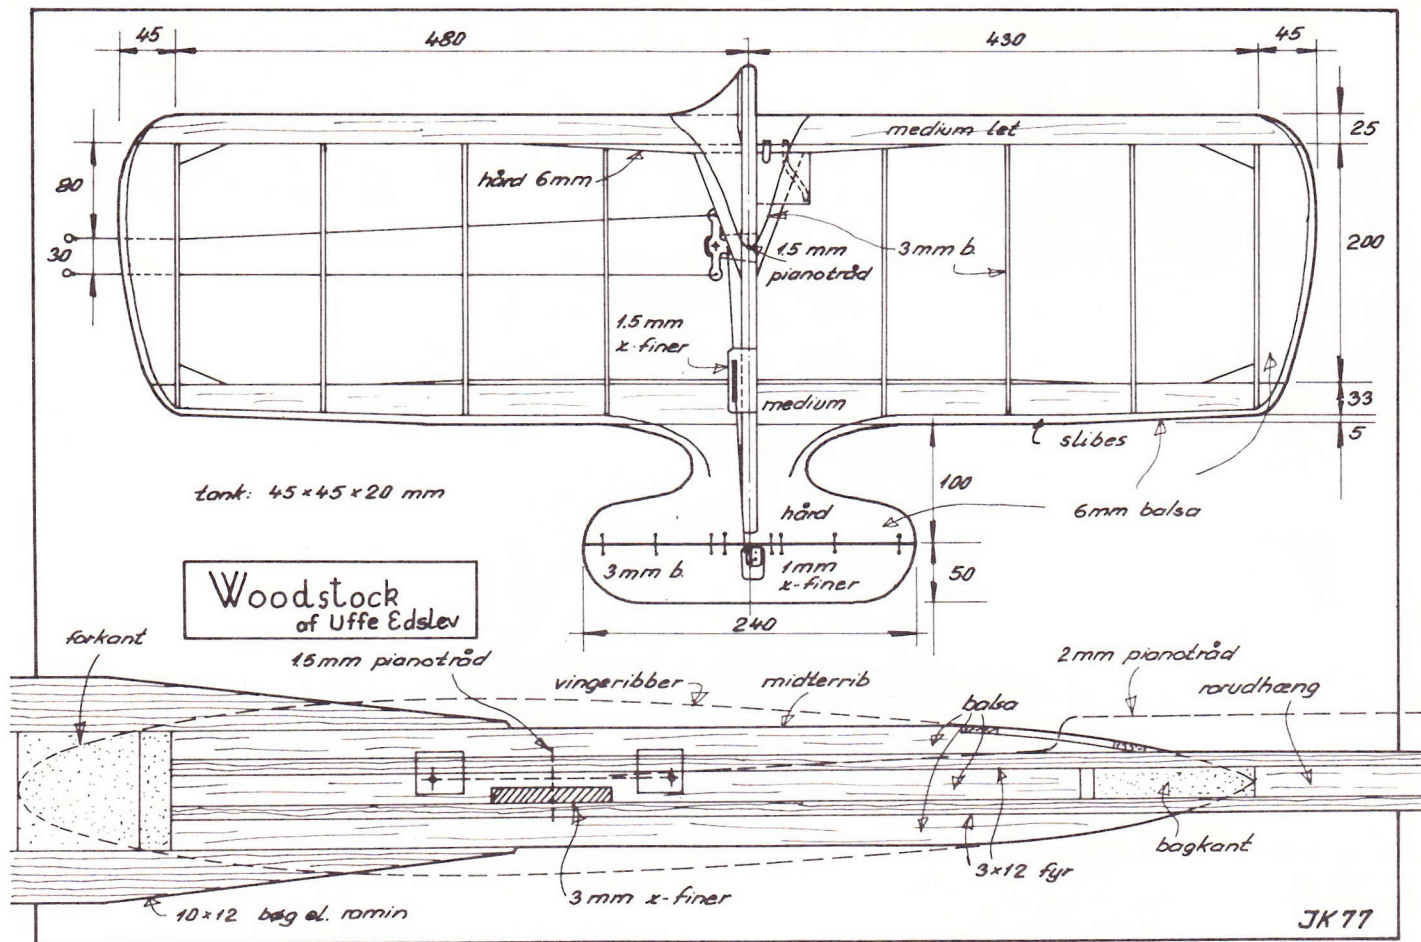 45
480
430
45
medium let
25
80
hård 6mm
30
1.5 mm
pianotråd
3mm b.
200
1.5 mm
x-finer
medium
33
slibes
5
tank: 45×45×20 mm
100
hård
6mm balsa
3mm b.
1mm
x-finer
50
240
Woodstock
af Uffe Edslev
forkant
1.5mm pianotråd
vingeribber
midterrib
2mm pianotråd
balsa
rorudhæng
bagkant
3×12 fyr
3mm x-finer
10×12 bøg el. ramin
JK 77